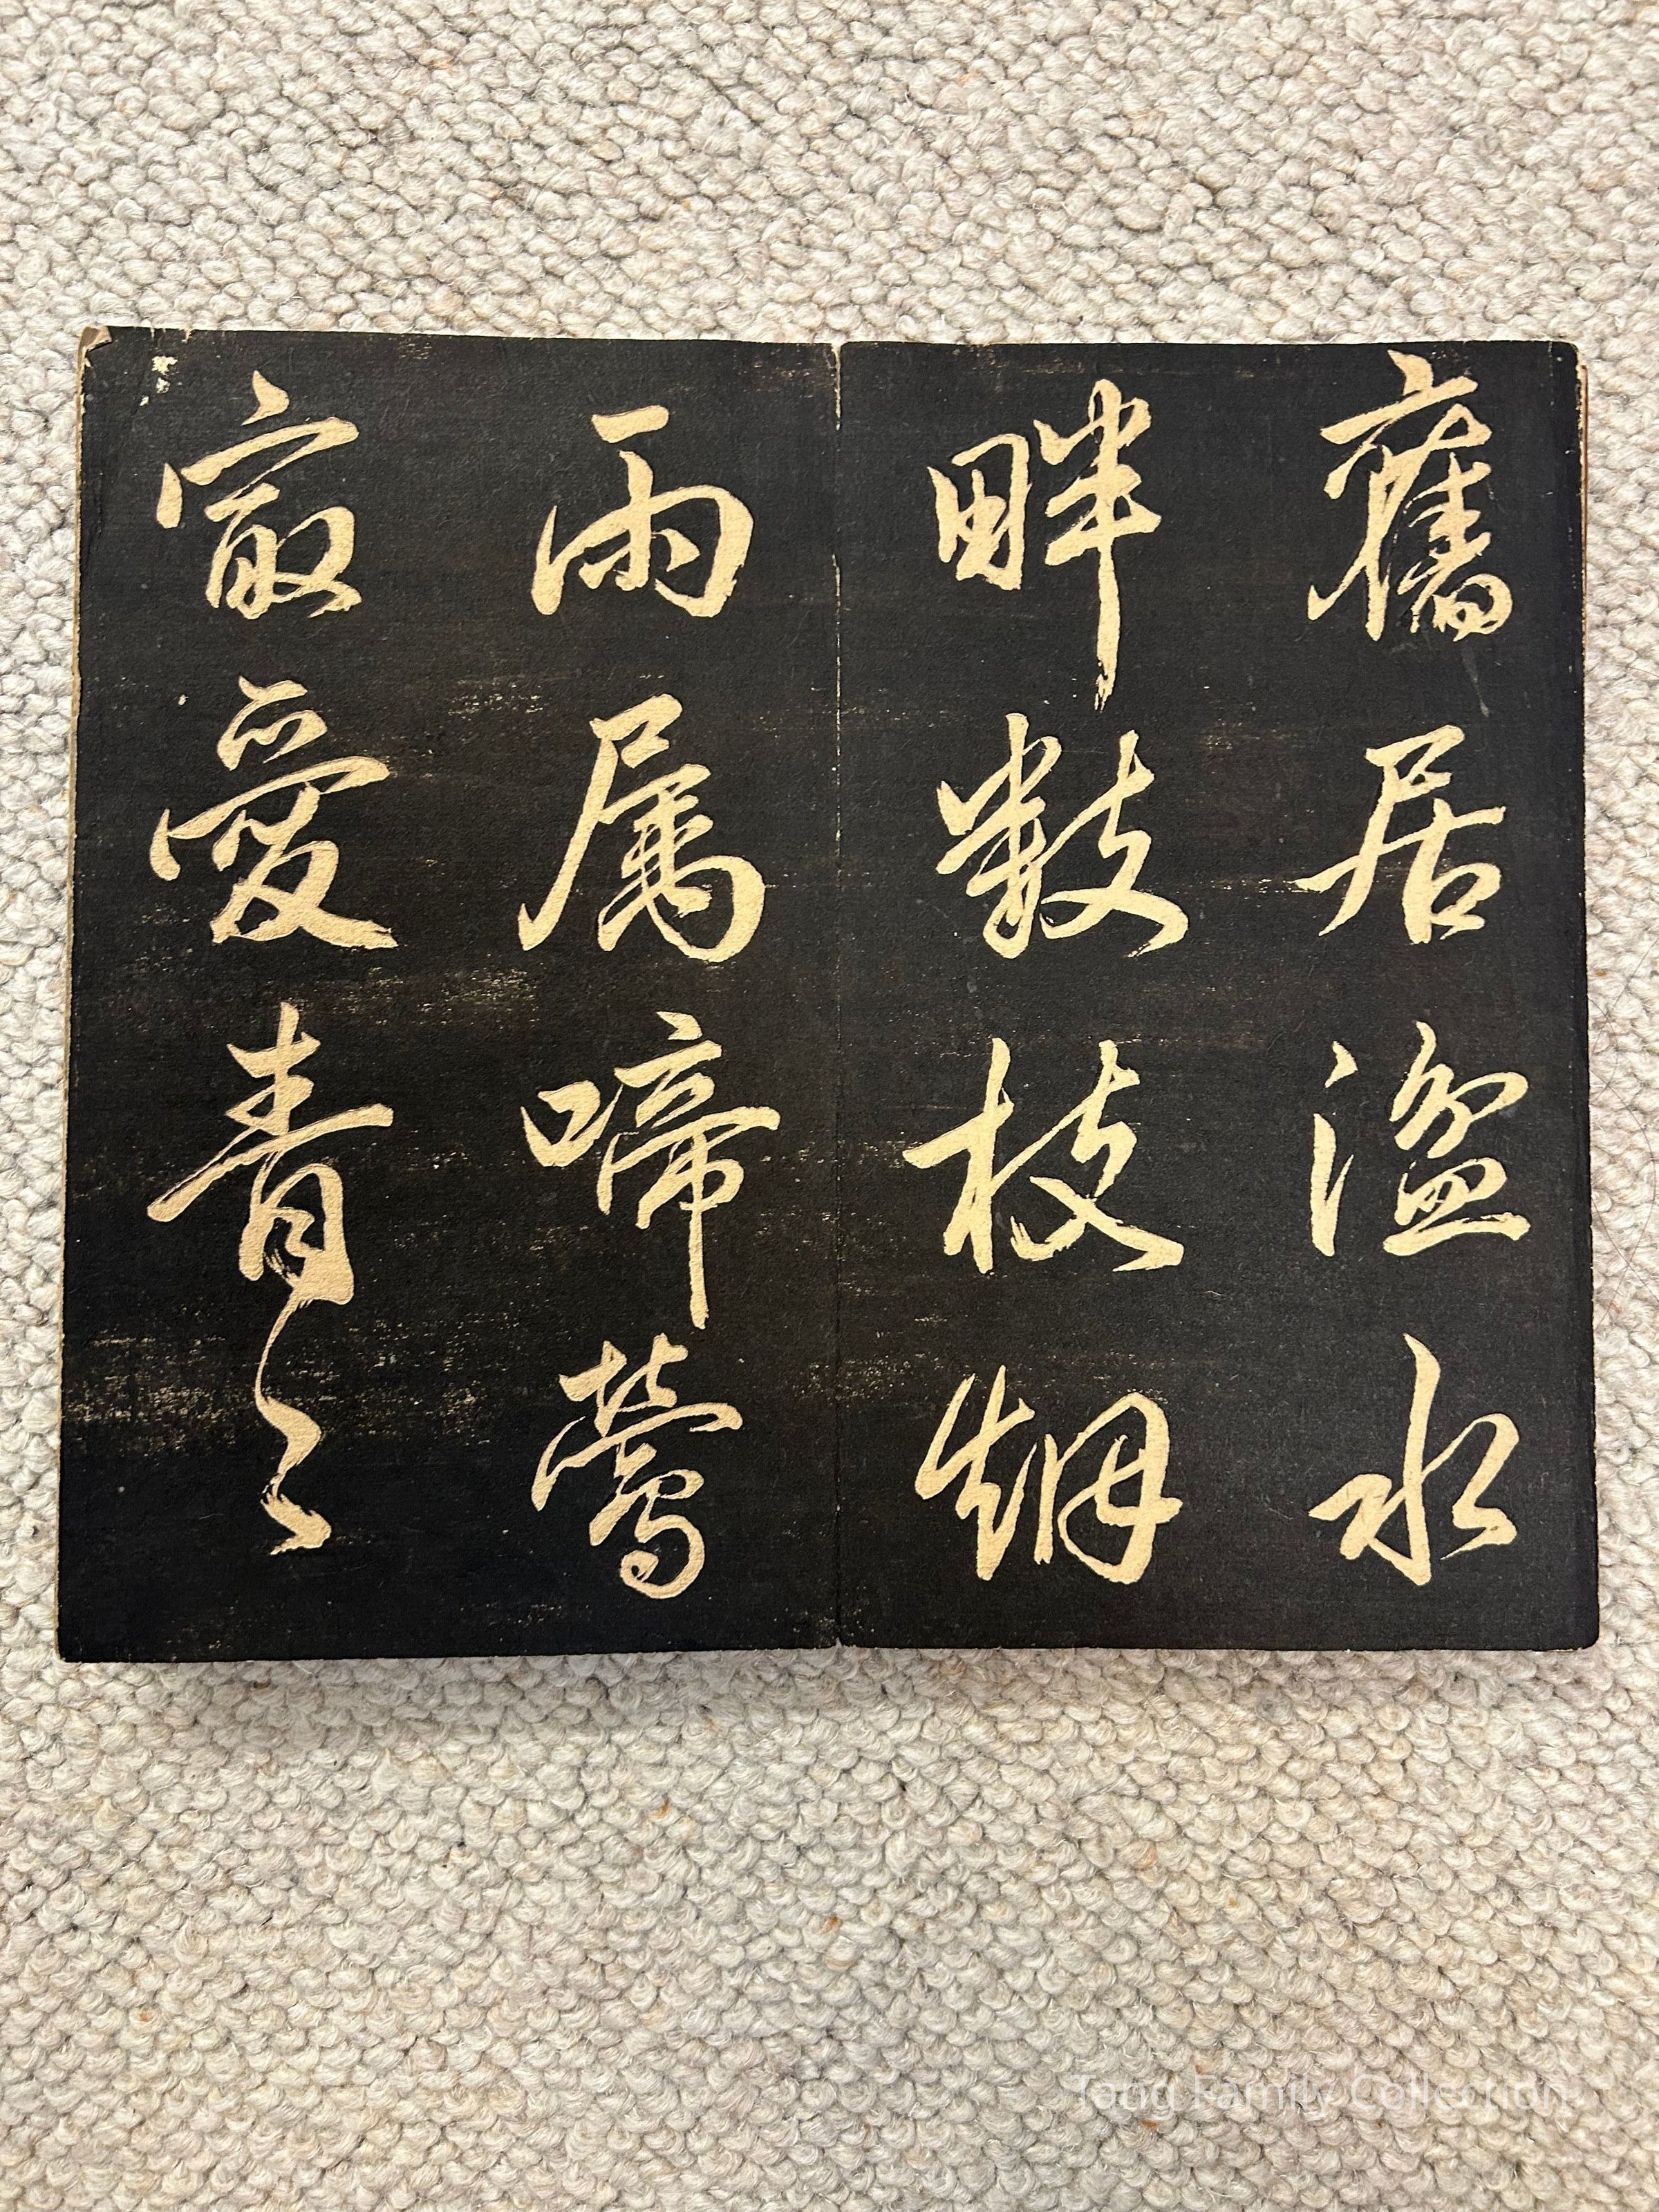 舊居湓水
畔數枝烟
雨属啼鶯
寂愛青〻
Tang Family Collection